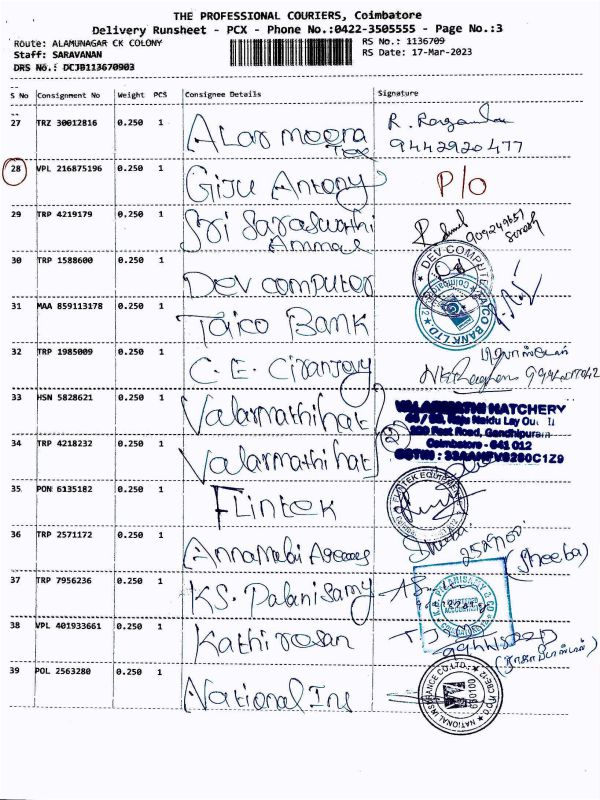 THE PROFESSIONAL COURIERS, Coimbatore
Delivery Runsheet - PCX - Phone No.:0422-3505555 - Page No.:3
Route: ALAMUNAGAR CK COLONY RS No.: 1136709
Staff: SARAVANAN RS Date: 17-Mar-2023
DRS No.: DCJB113670903
S No Consignment No Weight PCS Consignee Details Signature
27 TRZ 30012816 0.250 1 Alas moora Tex
9442920477
28 VPL 216875196 0.250 1 Giju Antony P/o
29 TRP 4219179 0.250 1 Sri Saraswathi Ammal
Suresh
30 TRP 1588600 0.250 1 Dev computer
DEV COMPUTER
31 MAA 859113178 0.250 1 Taico Bank
BANK LTD.
32 TRP 1985009 0.250 1 C.E. Ciranjavy
33 HSN 5828621 0.250 1 Valarmathi hat
VALARMATHI HATCHERY
Coimbatore - 641 012
34 TRP 4218232 0.250 1 Valarmathi hat (2)
35 PON 6135182 0.250 1 Flintek
36 TRP 2571172 0.250 1 Annamalai Agencies
(Sheeba)
37 TRP 7956236 0.250 1 KS. Palanisamy
38 VPL 401933661 0.250 1 Kathirvesan
39 POL 2563280 0.250 1 National Ins
NATIONAL INSURANCE CO.LTD.